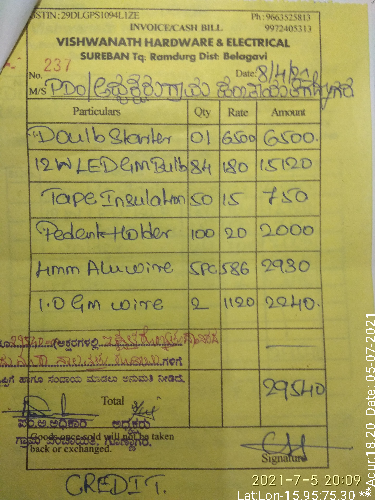 GSTIN:29DLGPS1094L1ZE Ph:9663525813
INVOICE/CASH BILL 9972405313
VISHWANATH HARDWARE & ELECTRICAL
SUREBAN Tq. Ramdurg Dist: Belagavi
No. 237 Date: 8/4/21
M/S PDO/ಅಧ್ಯಕ್ಷರು ಗ್ರಾಮ
Particulars Qty Rate Amount
Doulb Starter 01 6500 6500.
12W LED GM Bulb 84 180 15120
Tape Insulation 50 15 750
Pedent Holder 100 20 2000
4mm Alu wire 5PC 586 2930
1.0 GM wire 2 1120 2240.
29540
Total
ಪಂ.ಅ.ಅಧಿಕಾರಿ ಅಧ್ಯಕ್ಷರು
Goods once sold will not be taken
back or exchanged.
ಗ್ರಾಮ ಪಂಚಾಯತ,
Signature
CREDIT.
2021-7-5 20:09
LatLon-15.95:75.30 **Acur:18.20 Date: 05-07-2021